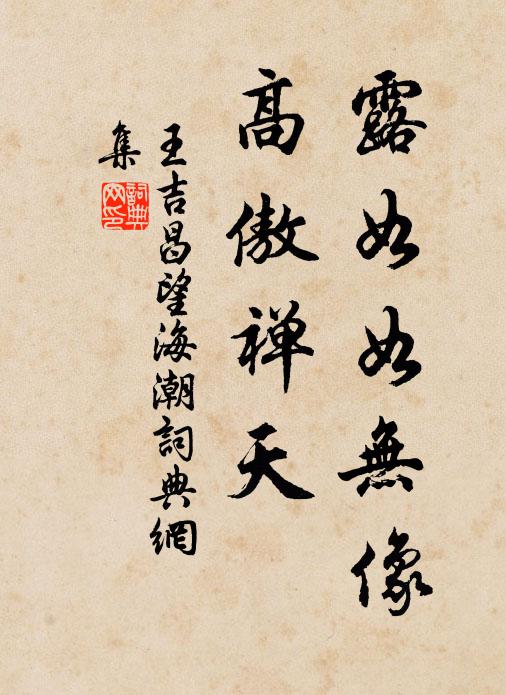 露如如無像
高傲禅天
王吉昌望海潮詞典網
集
詞典
网印